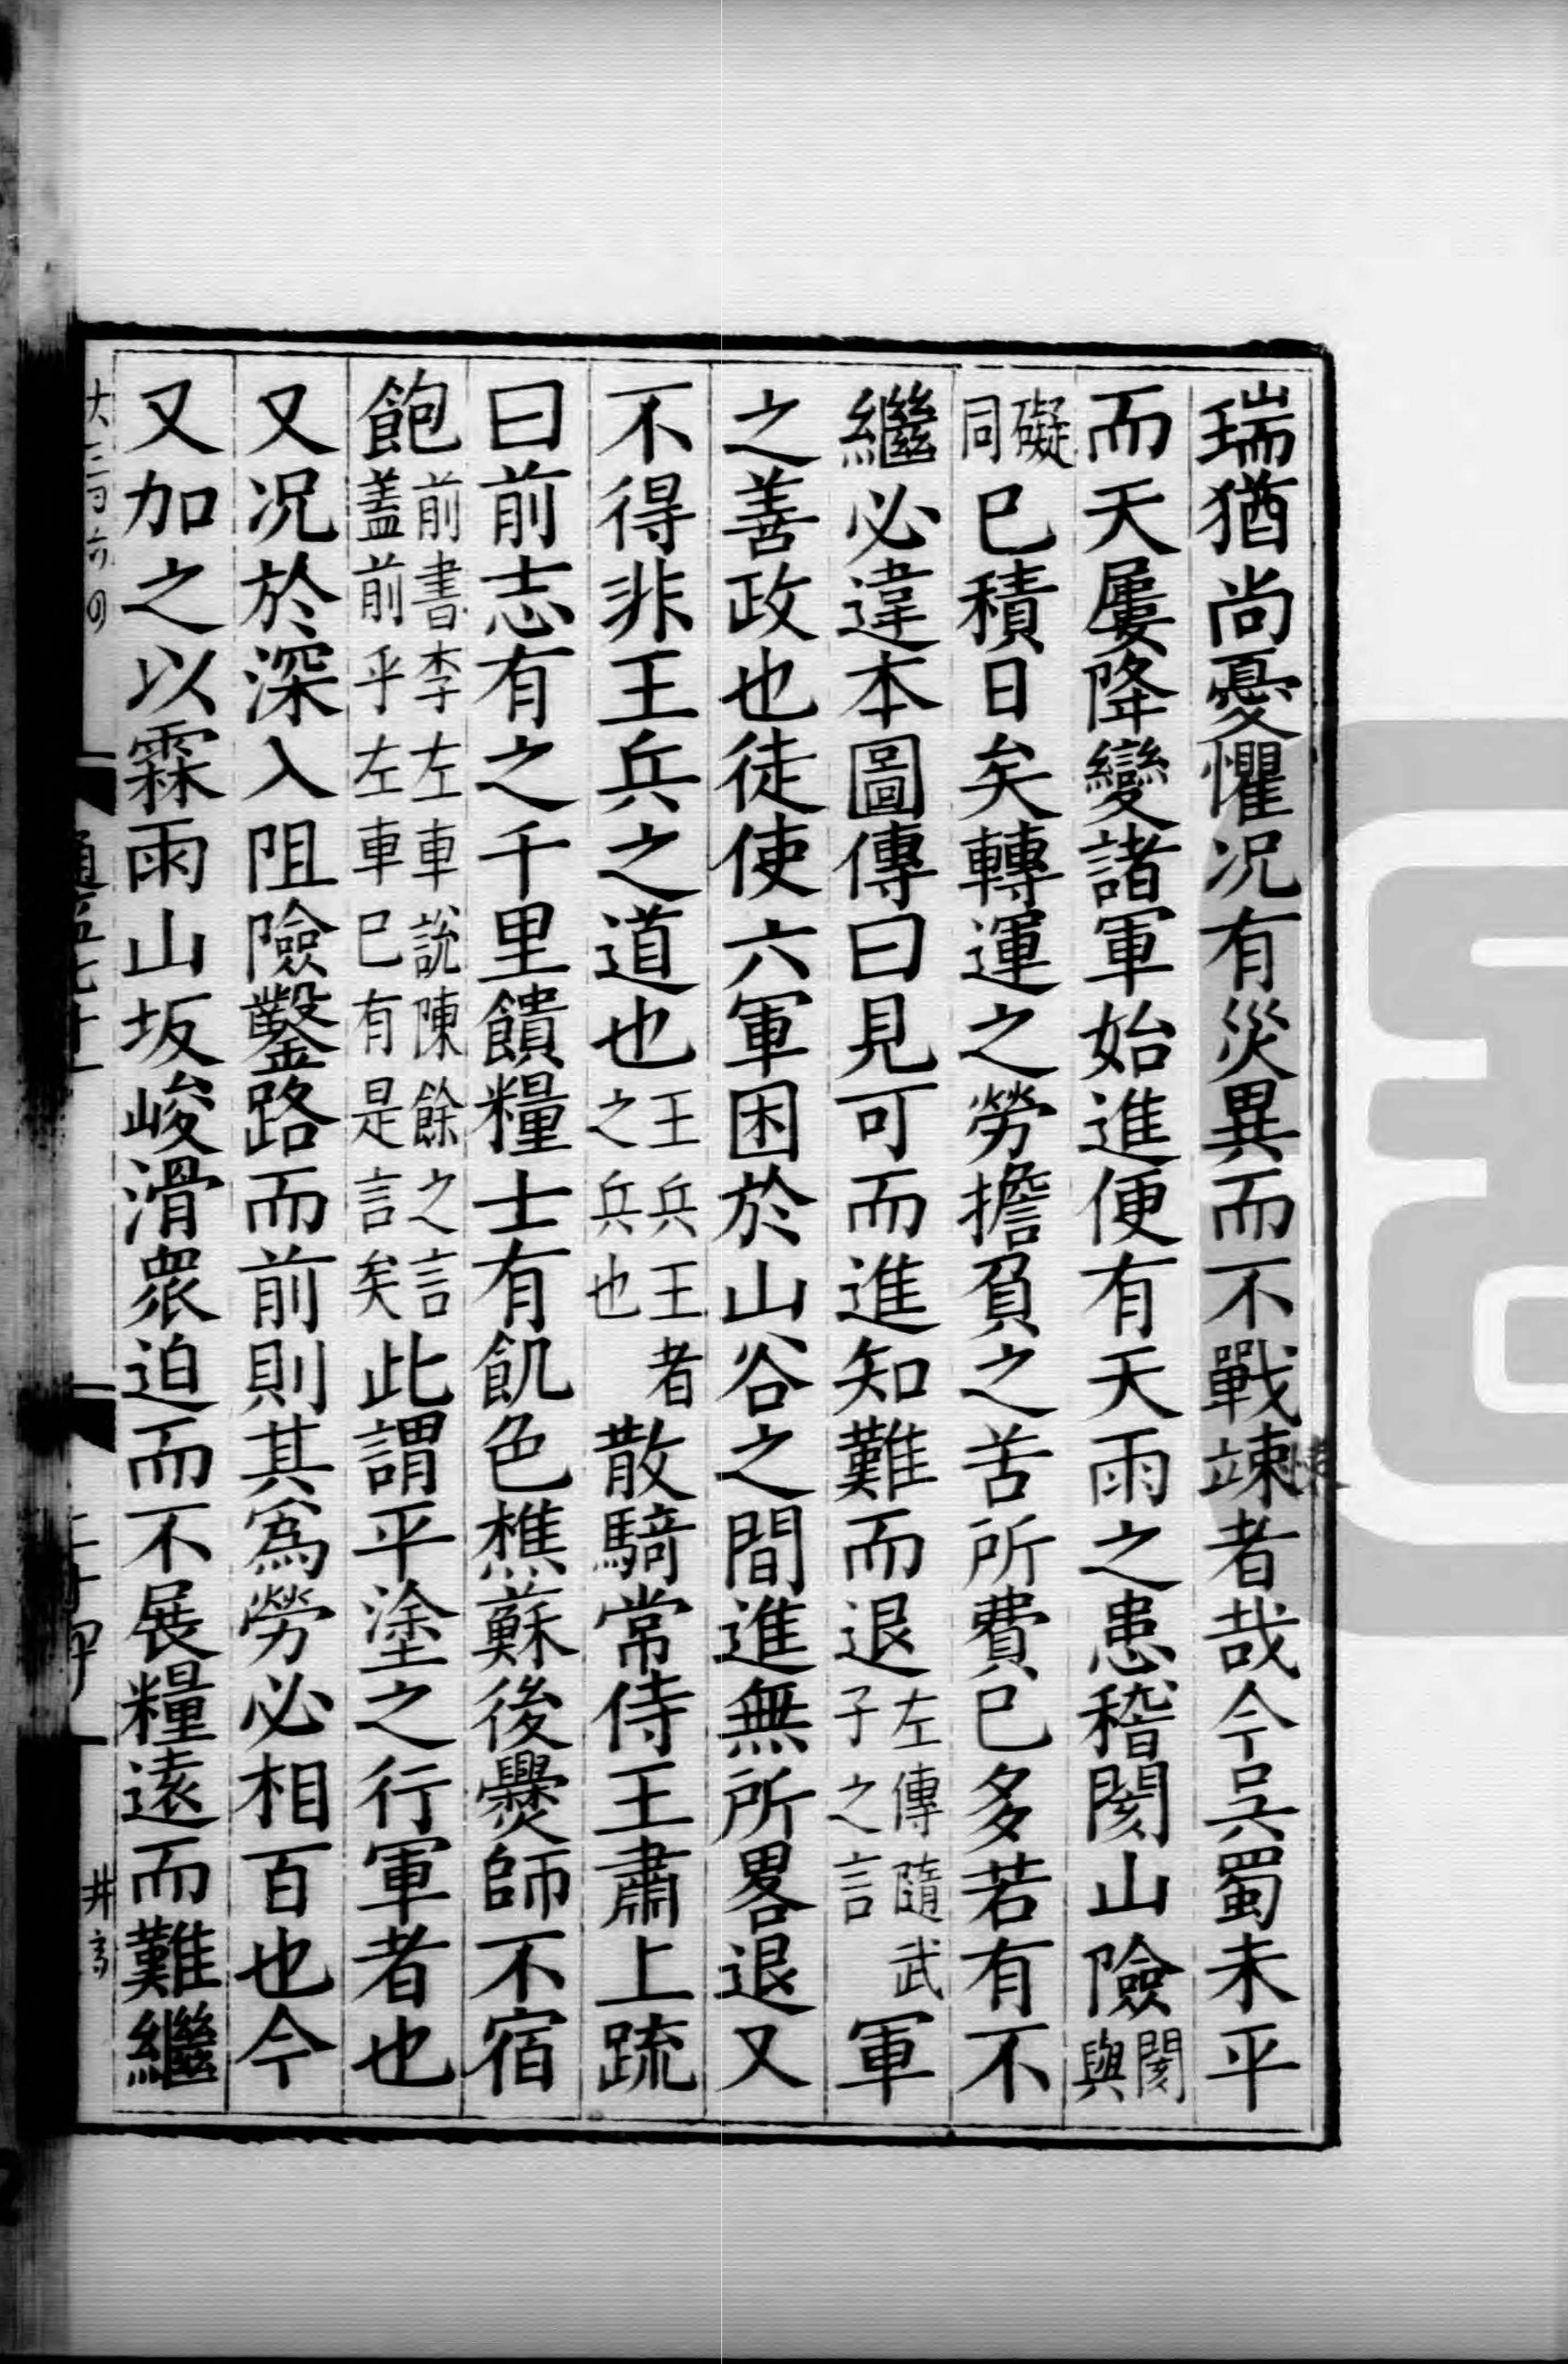 瑞猶尚憂懼况有災異而不戰竦者哉今吳蜀未平
而天屢降變諸軍始進便有天雨之患稽閡山險閡與
礙同已積日矣轉運之勞擔負之苦所費已多若有不
繼必違本圖傳曰見可而進知難而退左傳隨武子之言軍
之善政也徒使六軍困於山谷之間進無所畧退又
不得非王兵之道也王兵王者之兵也散騎常侍王肅上疏
曰前志有之千里饋糧士有飢色樵蘇後爨師不宿
飽前書李左車說陳餘之言蓋前乎左車已有是言矣此謂平塗之行軍者也
又况於深入阻險鑿路而前則其爲勞必相百也今
又加之以霖雨山坂峻滑衆迫而不展糧遠而難繼